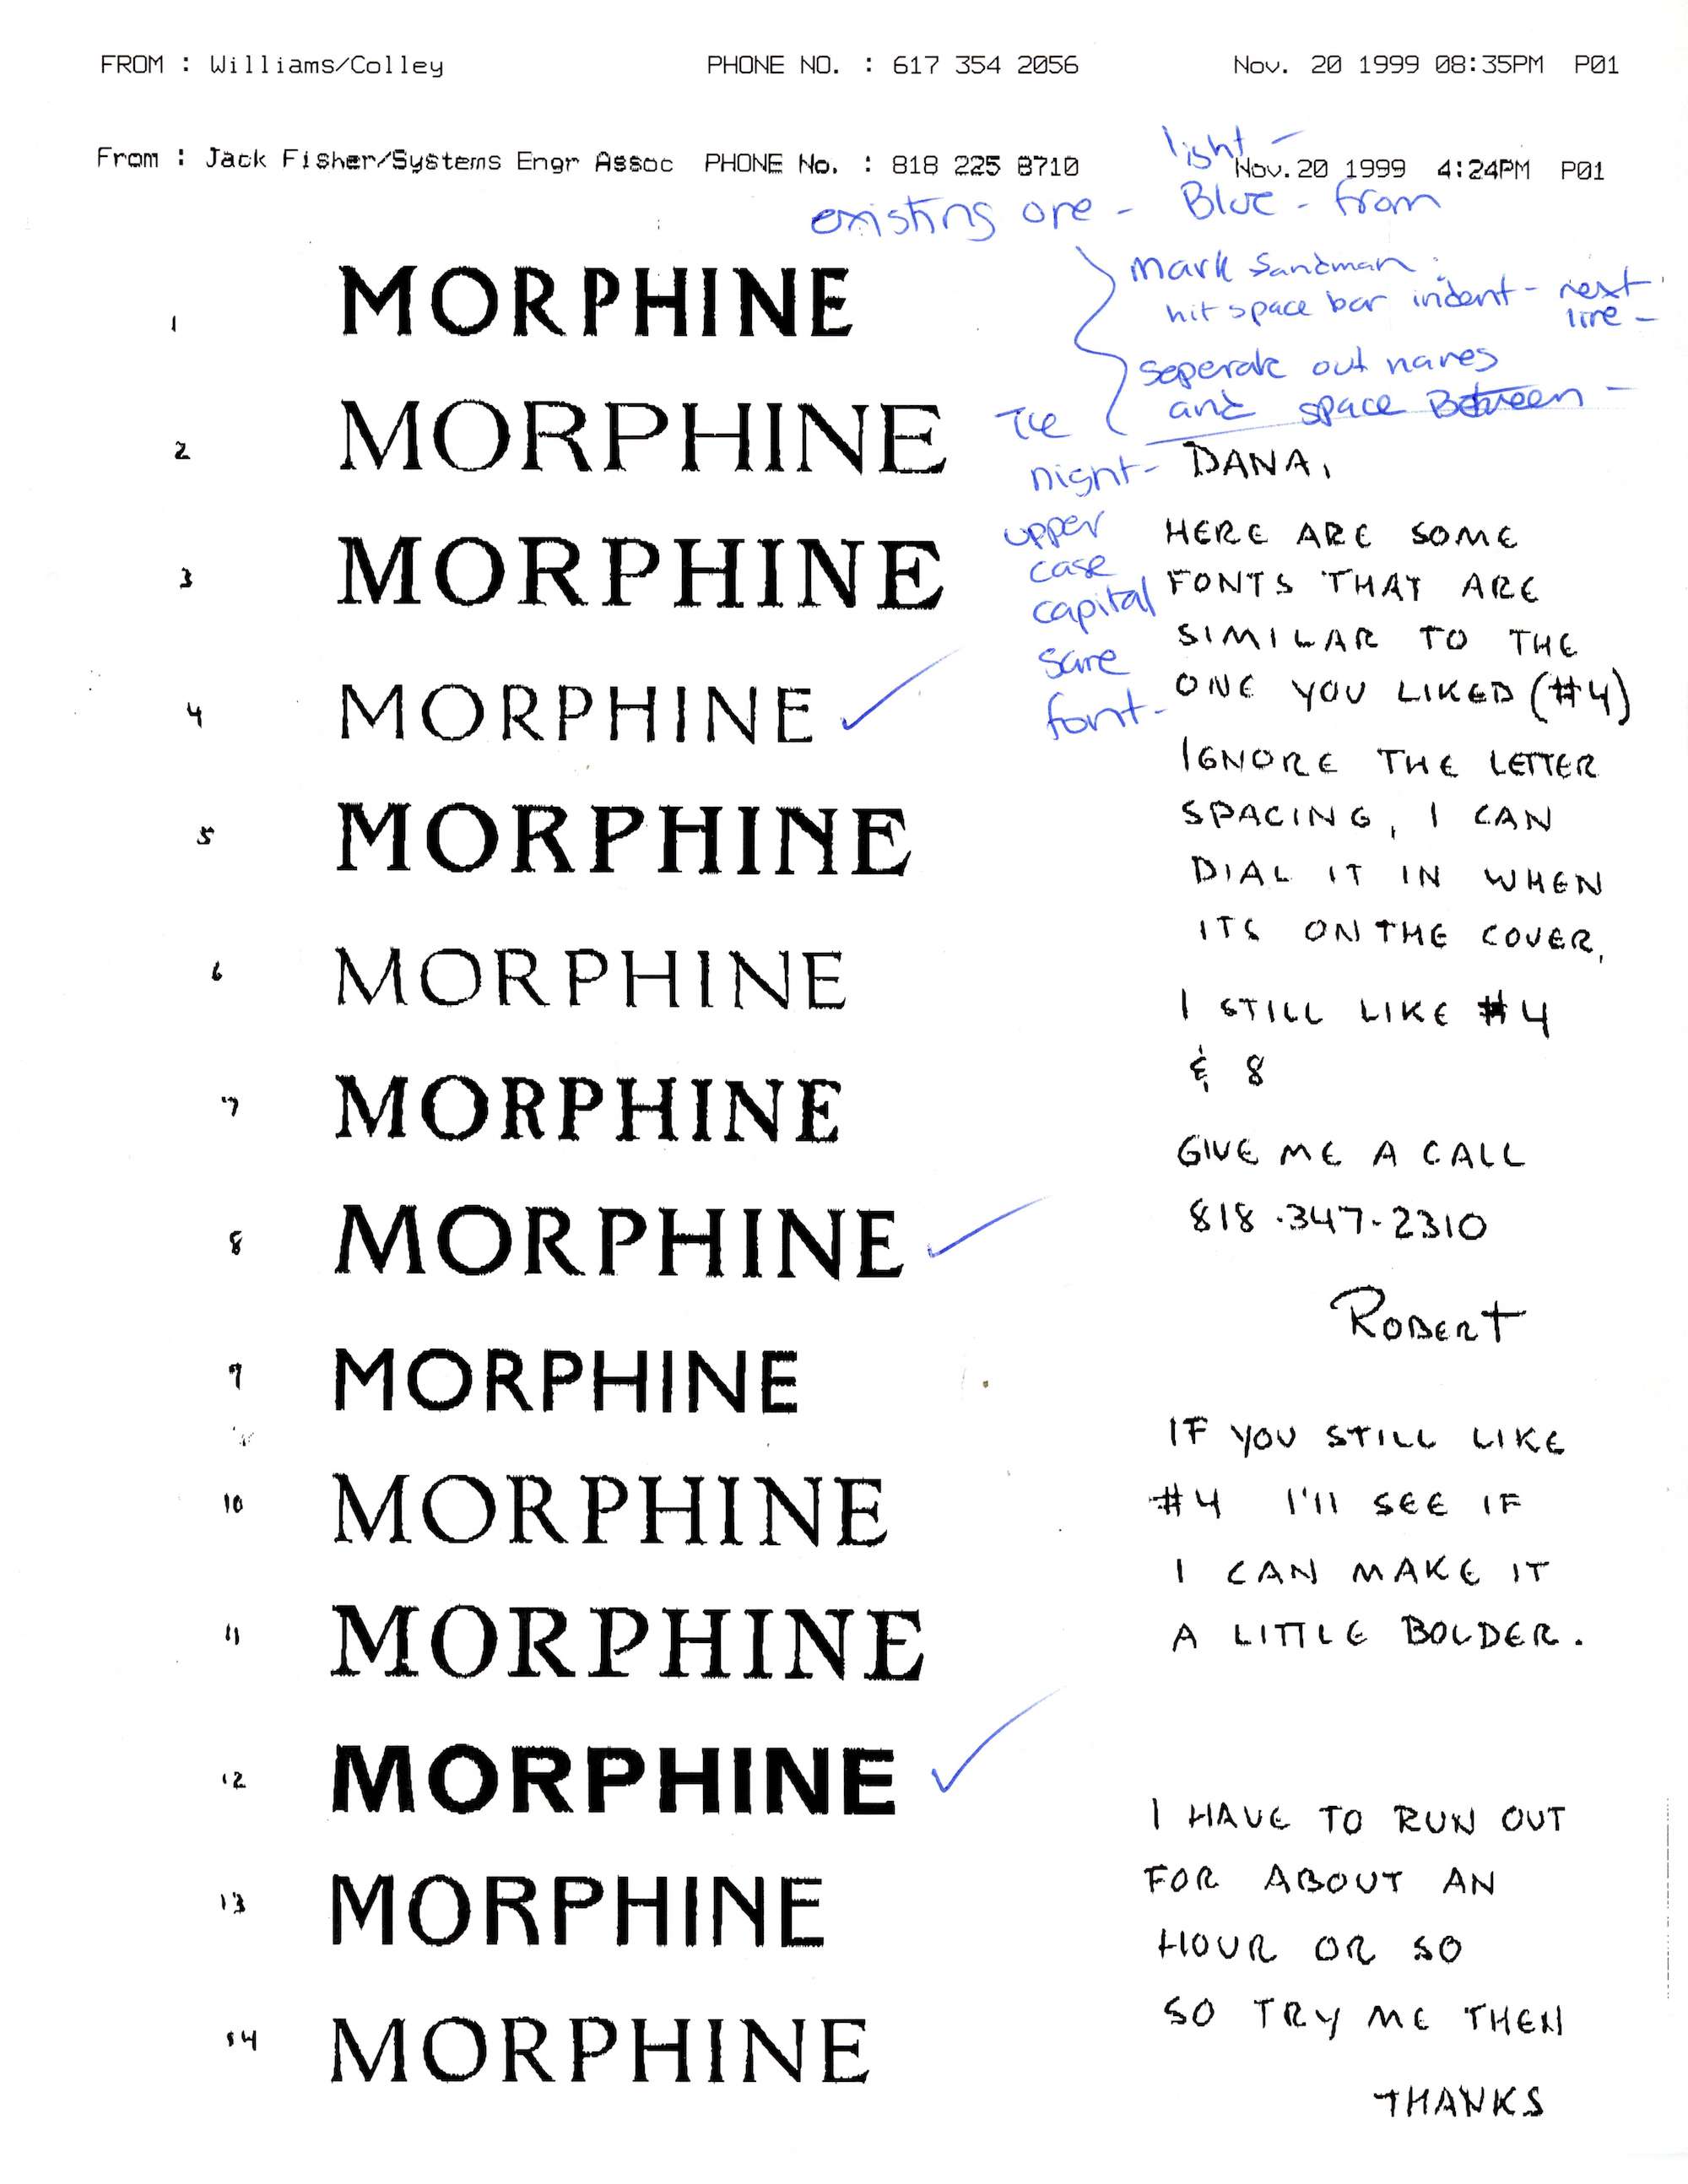 FROM : Williams/Colley PHONE NO. : 617 354 2056 Nov. 20 1999 08:35PM P01
From : Jack Fisher/Systems Engr Assoc PHONE No. : 818 225 8710 Nov.20 1999 4:24PM P01
light -
existing one - Blue - from
Mark Sandman
hit space bar indent - next
line -
seperate out names
and space Between -
The
night -
upper
case
capital
same
font -
1 MORPHINE
2 MORPHINE
3 MORPHINE
4 MORPHINE ✓
5 MORPHINE
6 MORPHINE
7 MORPHINE
8 MORPHINE ✓
9 MORPHINE
10 MORPHINE
11 MORPHINE
12 MORPHINE ✓
13 MORPHINE
14 MORPHINE
DANA,
HERE ARE SOME
FONTS THAT ARE
SIMILAR TO THE
ONE YOU LIKED (#4)
IGNORE THE LETTER
SPACING, I CAN
DIAL IT IN WHEN
ITS ON THE COVER.
I STILL LIKE #4
& 8
GIVE ME A CALL
818-347-2310
ROBERT
IF YOU STILL LIKE
#4 I'll SEE IF
I CAN MAKE IT
A LITTLE BOLDER.
I HAVE TO RUN OUT
FOR ABOUT AN
HOUR OR SO
SO TRY ME THEN
THANKS